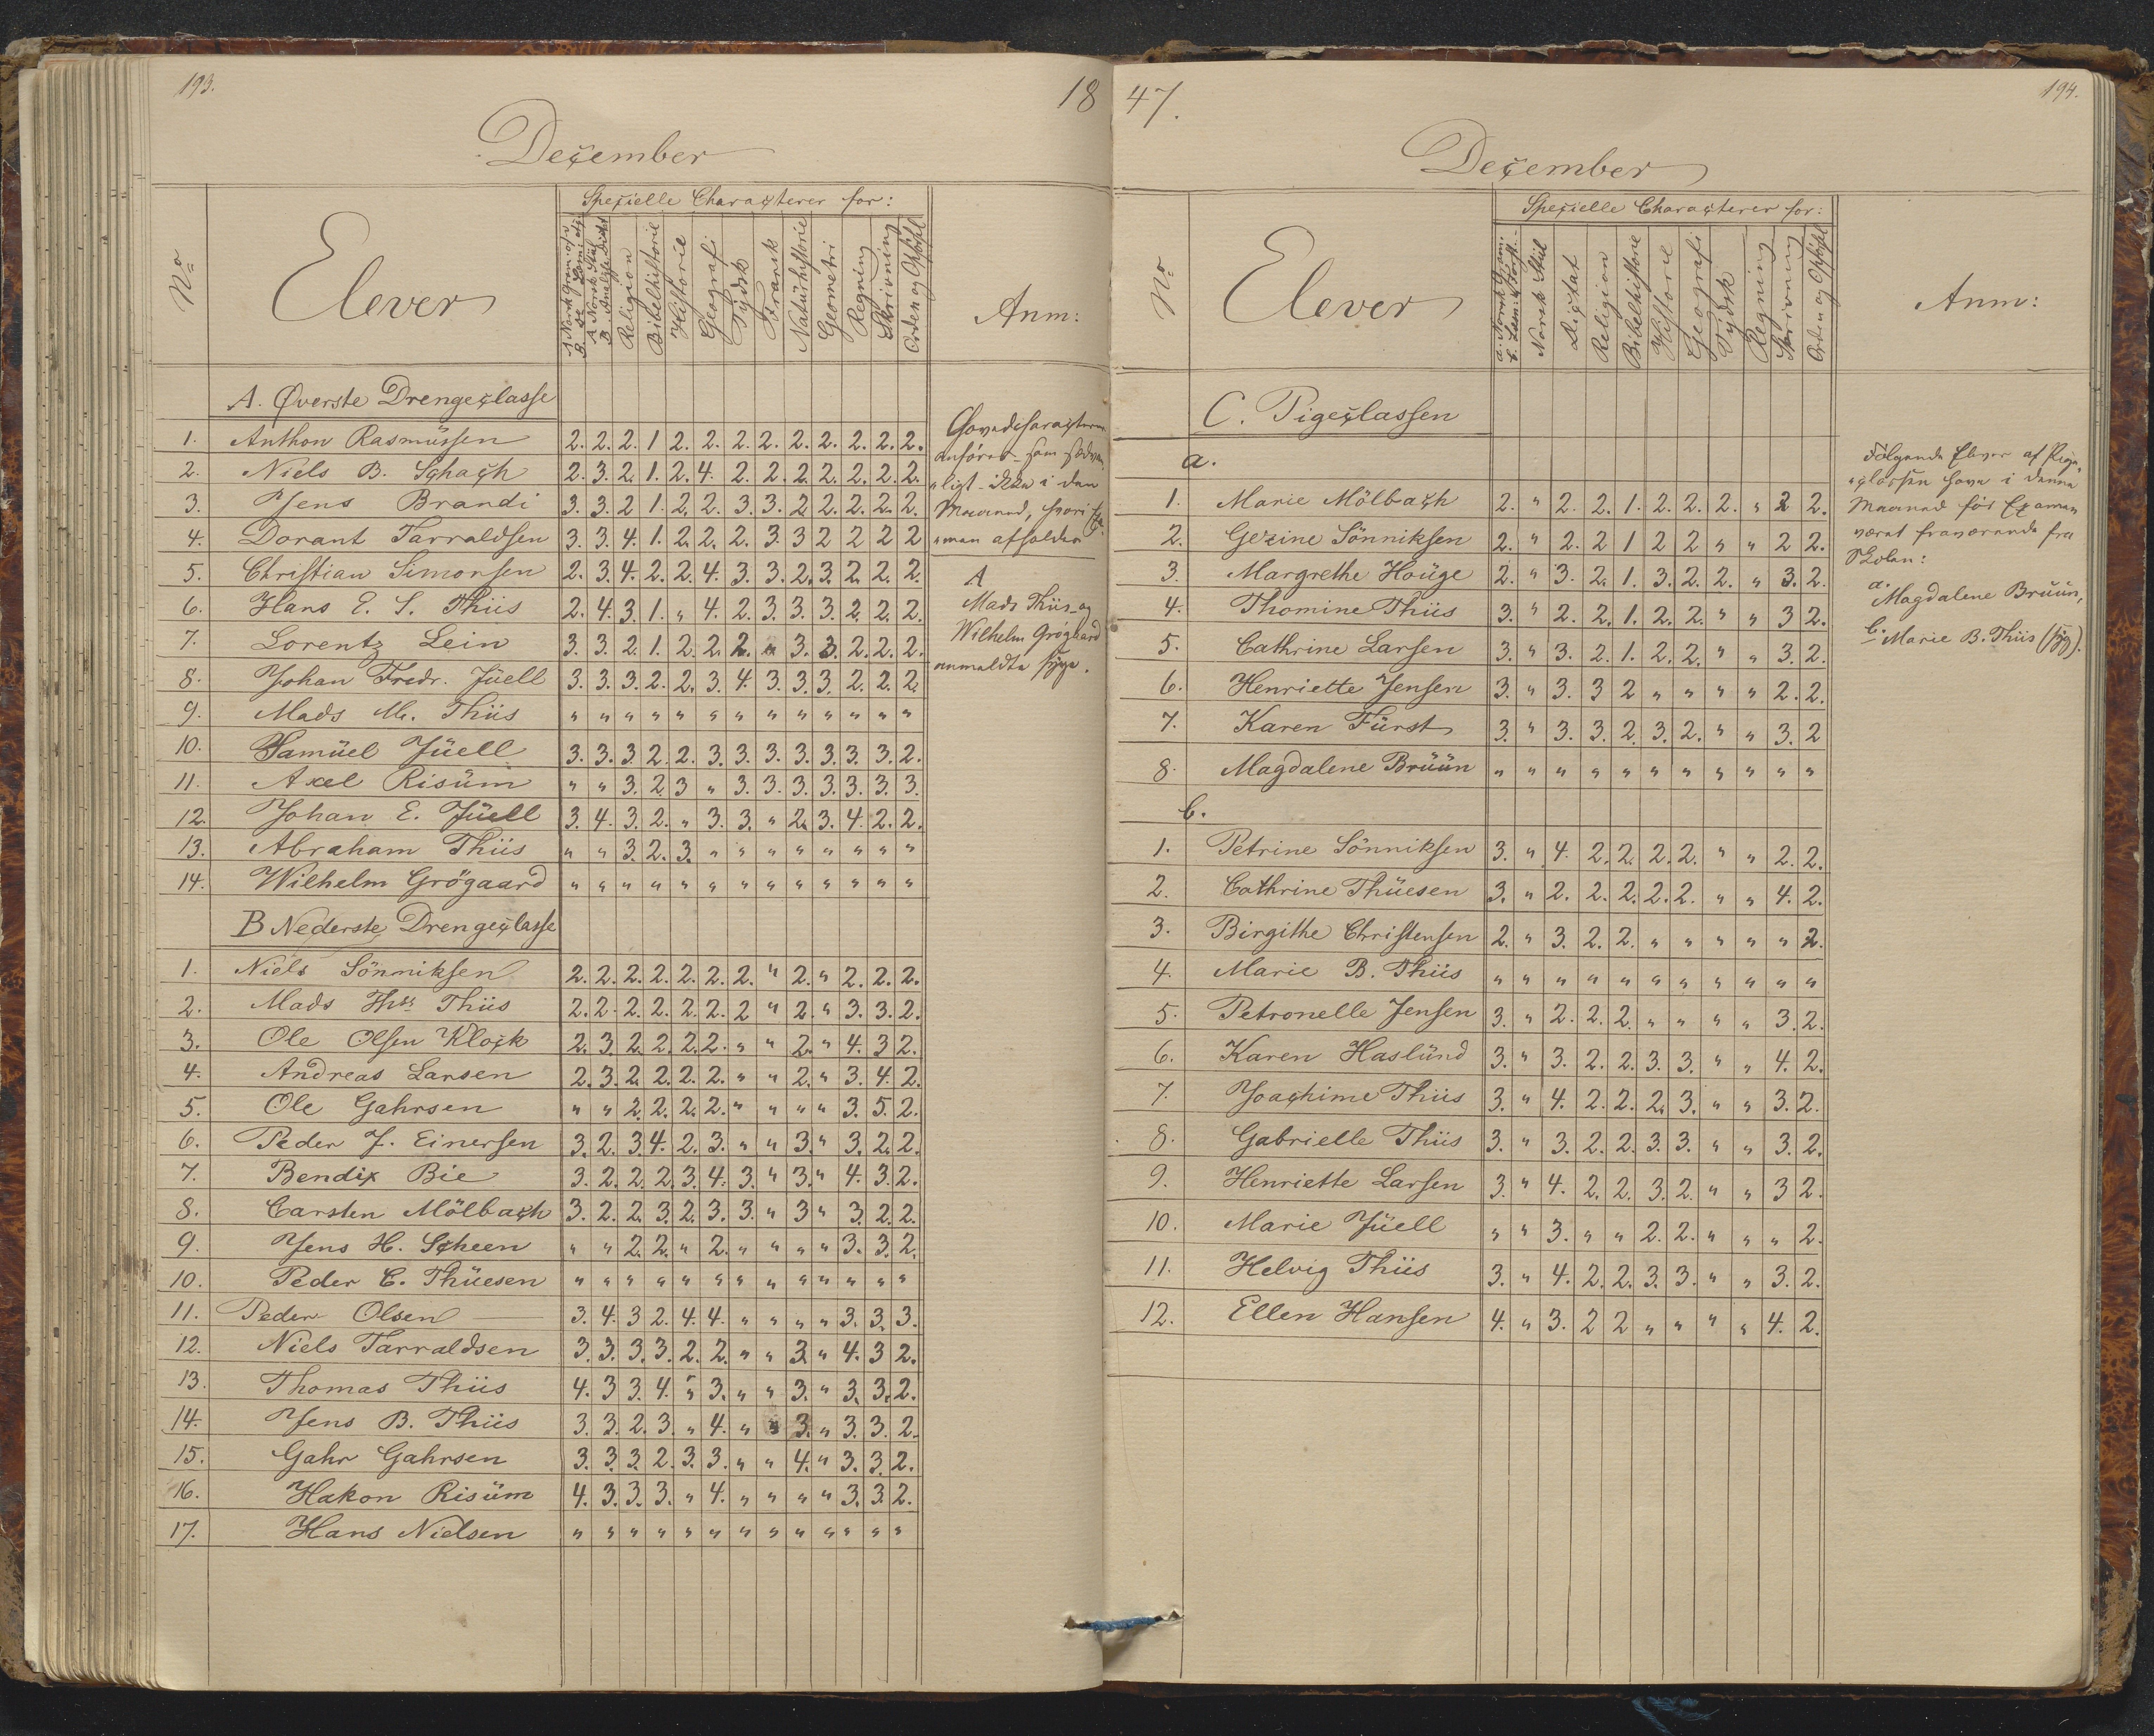 193.
18
December
Specielle Characterer for:
No
Elever
A Norsk Gram: og
A Norsk Stiil
B. Analyse Dictat
Religion
Bibelhistorie
Historie
Geografi
Tydsk
Fransk
Natürhistorie
Geometri
Regning
Skrivning
Orden og Opførs.
Anm:
A. Øverste Drengeclasse
1. Anthon Rasmüssen 2. 2. 2. 1 2. 2. 2. 2. 2. 2. 2. 2. 2.
2. Niels B. Schach 2. 3. 2. 1. 2. 4. 2. 2. 2. 2. 2. 2. 2.
3. Jens Brandi 3. 3. 2 1. 2. 2. 3. 3. 2 2. 2. 2. 2.
4. Dorant Tarraldsen 3. 3. 4. 1. 2. 2. 2. 3. 3 2 2 2 2
5. Christian Simonsen 2. 3. 4. 2. 2. 4. 3. 3. 2. 3. 2. 2. 2.
6. Hans E. S. Thiis 2. 4. 3. 1. " 4. 2. 3. 3. 3. 2. 2. 2.
7. Lorentz Lein 3. 3. 2. 1. 2. 2. 2. " 3. 3. 2. 2. 2.
8. Johan Fredr. Jüell 3. 3. 3. 2. 2. 3. 4. 3. 3. 3. 2. 2. 2.
9. Mads M. Thiis " " " " " " " " " " " " "
10. Samüel Jüell 3. 3. 3. 2. 2. 3. 3. 3. 3. 3. 3. 3. 2.
11. Axel Risüm " " 3. 2. 3 " 3. 3. 3. 3. 3. 3. 3.
12. Johan E. Jüell 3. 4. 3. 2. " 3. 3. " 2. 3. 4. 2. 2.
13. Abraham Thiis " " 3. 2. 3. " " " " " " " "
14. Wilhelm Grögaard " " " " " " " " " " " " "
B Nederste Drengeclasse
1. Niels Sönniksen 2. 2. 2. 2. 2. 2. 2. " 2. " 2. 2. 2.
2. Mads Ths Thiis 2. 2. 2. 2. 2. 2. 2 " 2. " 3. 3. 2.
3. Ole Olsen Klock 2. 3. 2. 2. 2. 2. " " 2. " 4. 3 2.
4. Andreas Larsen 2. 3. 2. 2. 2. 2. " " 2. " 3. 4. 2.
5. Ole Gahrsen " " 2. 2. 2. 2. " " " " 3. 5. 2.
6. Peder J. Einersen 3. 2. 3. 4. 2. 3. " " 3. " 3. 2. 2.
7. Bendix Bie 3. 2. 2. 2. 3. 4. 3. " 3. " 4. 3. 2.
8. Carsten Mölbach 3. 2. 2. 3. 2. 3. 3. " 3 " 3. 2. 2.
9. Jens H. Scheen " " 2. 2. " 2. " " " " 3. 3. 2.
10. Peder C. Thüesen " " " " " " " " " " " " "
11. Peder Olsen 3. 4. 3 2. 4. 4. " " " " 3. 3. 3.
12. Niels Tarraldsen 3. 3. 3. 3. 2. 2. " " 3. " 4. 3 2.
13. Thomas Thiis 4. 3 3. 4. " 3. " " 3. " 3. 3. 2.
14. Jens B. Thiis 3. 3. 2. 3. " 4. " " 3. " 3. 3. 2.
15. Gahr Gahrsen 3. 3. 3. 2. 3. 3. " " 4. " 3. 3. 2.
16. Hakon Risüm 4. 3. 3. 3. " 4. " " " " 3. 3. 2.
17. Hans Nielsen " " " " " " " " " " " " "
Hovedcharacteren
anföres som sædvan,
"ligt ikke i den
Maaned, hvori Exa,
"men afholdes
A
Mads Thiis og
Wilhelm Grögaard
anmeldte syge.
47.
194.
December
Specielle Characterer for:
No
Elever
a. Norsk Gram:
Norsk Stiil
Dictat
Religion
Bibelhistorie
Historie
Geografi
Tydsk
Regning
Skrivning
Orden og Opførs.
Anm:
C. Pigeclassen
a.
1. Marie Mölbach 2. " 2. 2. 1. 2. 2. 2. " 2 2.
2. Gezine Sönniksen 2. " 2. 2 1 2 2 " " 2 2.
3. Margrethe Hoüge 2. " 3. 2. 1. 3. 2. 2. " 3. 2.
4. Thomine Thiis 3. " 2. 2. 1. 2. 2. " " 3 2.
5. Cathrine Larsen 3. " 3. 2. 1. 2. 2. " " 3. 2.
6. Henriette Jensen 3. " 3. 3 2 " " " " 2. 2.
7. Karen Fürst 3. " 3. 3. 2. 3. 2. " " 3. 2
8. Magdalene Brüün " " " " " " " " " " "
b.
1. Petrine Sönniksen 3. " 4. 2. 2. 2. 2. " " 2. 2.
2. Cathrine Thüesen 3. " 2. 2. 2. 2. 2. " " 4. 2.
3. Birgithe Christensen 2. " 3. 2. 2. " " " " " 2.
4. Marie B. Thiis " " " " " " " " " " "
5. Petronelle Jensen 3. " 2. 2. 2. " " " " 3. 2.
6. Karen Haslünd 3. " 3. 2. 2. 3. 3. " " 4. 2.
7. Joachime Thiis 3. " 4. 2. 2. 2. 3. " " 3. 2.
8. Gabrielle Thiis 3. " 3. 2. 2. 3. 3. " " 3. 2.
9. Henriette Larsen 3. " 4. 2. 2. 3. 2. " " 3 2.
10. Marie Jüell " " 3. " " 2. 2. " " " 2.
11. Helvig Thiis 3. " 4. 2. 2. 3. 3. " " 3. 2.
12. Ellen Hansen 4. " 3. 2 2 " " " " 4. 2.
Følgende Elever af Pige,
"classen have i denne
Maaned før Examen
været fraværende fra
Skolen:
a. Magdalene Brüün,
b. Marie B. Thiis (syg).